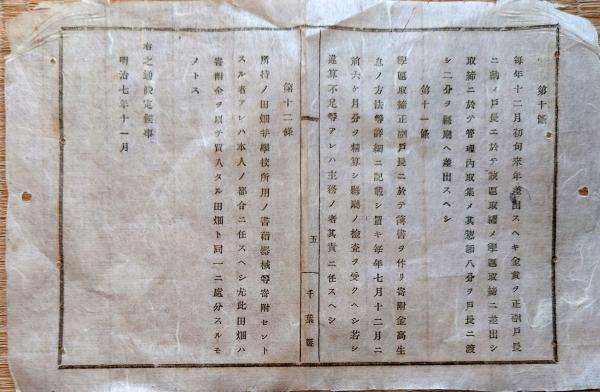 第十條
毎年十二月初旬來年差出スヘキ金員ヲ正副戸長
ニ於テ戸長ニ於テ該區取纏メ學區取締ニ差出シ
取締ニ於テ管理內取集メ其惣額八分ヲ戸長ニ渡
シ二分ヲ縣廳ヘ差出スヘシ
第十一條
學區取締正副戸長ニ於テ簿書ヲ作リ寄附金高生
息ノ方法等詳細ニ記載シ置キ毎年七月十二月ニ
前六ケ月分ヲ精算シ縣廳ノ檢査ヲ受クヘシ若シ
違算不足等アレハ主務ノ者其責ニ任スヘシ
五
千葉縣
第十二條
所持ノ田畑並學校所用ノ書籍器械等寄附セント
スル者アレハ本人ノ都合ニ任スヘシ尤此田畑ハ
寄附金ヲ以テ買入タル田畑ト同一ニ處分スルモ
ノトス
右之通設定候事
明治七年十一月